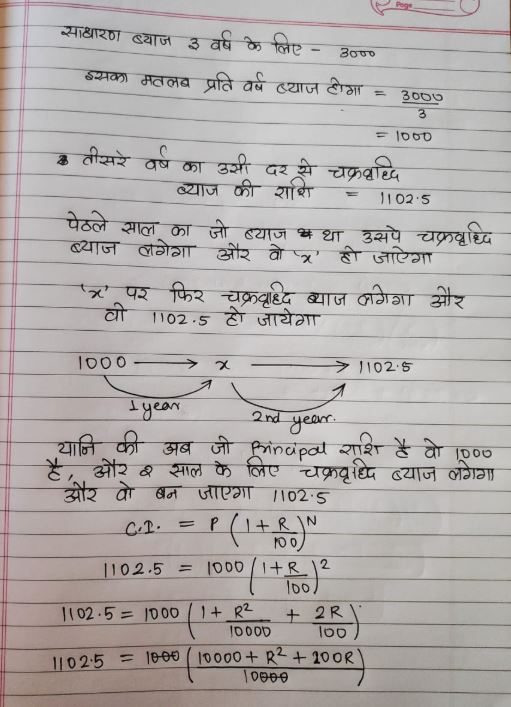 Page
साधारण ब्याज 3 वर्ष के लिए - 3000
इसका मतलब प्रति वर्ष ब्याज होगा = 3000/3
= 1000
तीसरे वर्ष का उसी दर से चक्रवृध्दि
ब्याज की राशि = 1102.5
पेहले साल का जो ब्याज था उसपे चक्रवृध्दि
ब्याज लगेगा और वो 'x' हो जाएगा
'x' पर फिर चक्रवृध्दि ब्याज लगेगा और
वो 1102.5 हो जायेगा
1000 → x → 1102.5
1 year 2nd year.
यानि की अब जो Principal राशि है वो 1000
है, और 2 साल के लिए चक्रवृध्दि ब्याज लगेगा
और वो बन जाएगा 1102.5
C.I. = P (1 + R/100)^N
1102.5 = 1000 (1 + R/100)^2
1102.5 = 1000 (1 + R²/10000 + 2R/100)
1102.5 = 1000 (10000 + R² + 200R / 10000)